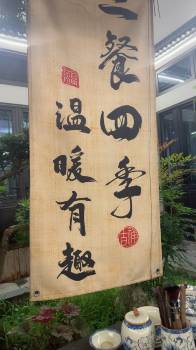 三餐四季
温暖有趣